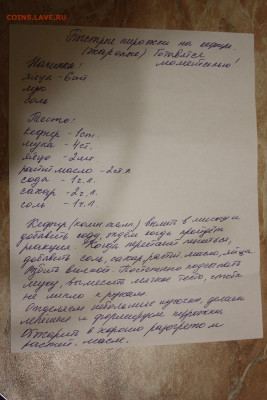 COINS.LAVE.RU
Быстрые пирожки на кефире
(жареные) Готовятся
моментально!
Начинка:
яйца - 6шт
лук
соль
Тесто:
кефир - 1ст.
мука - 4ст.
яйцо - 2шт
растит. масло - 2ст.л
сода - 1ч.л.
сахар - 2ч.л.
соль - 1ч.л.
Кефир (комн. темп.) вылить в миску и
добавить соду, ждём когда пройдёт
реакция. Когда перестанет пениться,
добавить соль, сахар, растит. масло, яйца
Взбить вилкой. Постепенно подсыпать
муку, вымесить мягкое тесто, чтобы
не липло к рукам.
Отделяем небольшие кусочки, делаем
лепёшки и формируем пирожки.
Обжарить в хорошо разогретом
растит. масле.